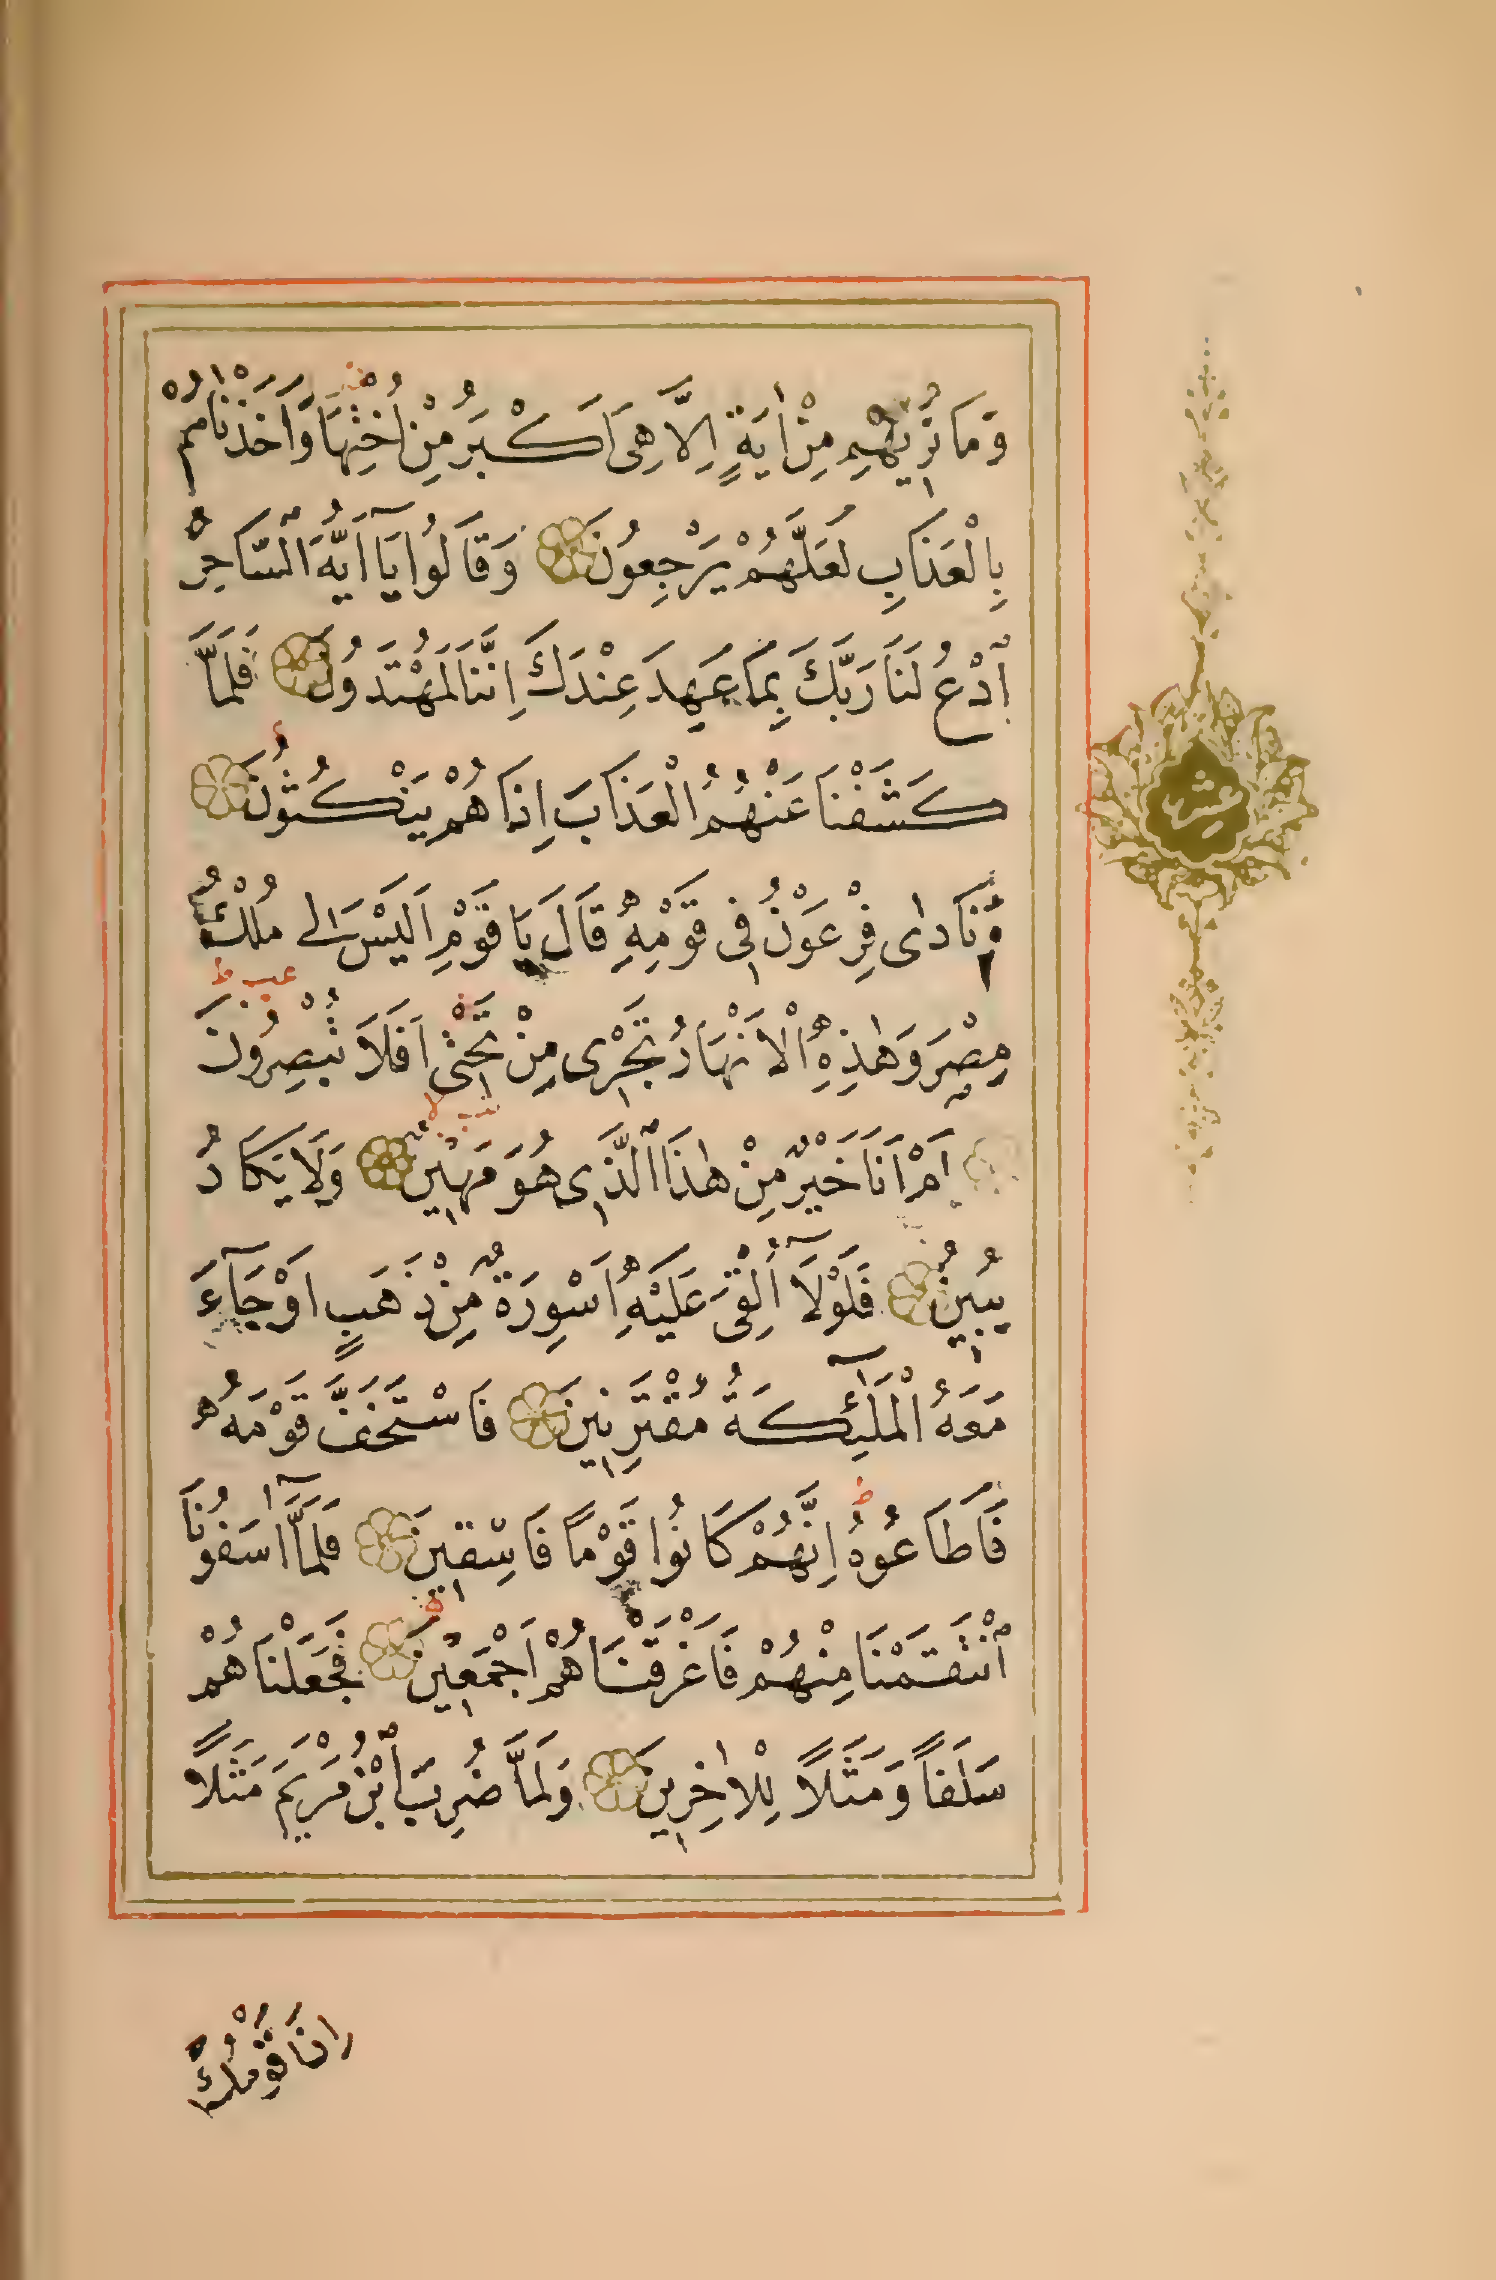 وَمَا نُرِيهِمْ مِنْ اٰيَةٍ اِلَّا هِيَ اَكْبَرُ مِنْ اُخْتِهَا وَاَخَذْنَاهُمْ
بِالْعَذَابِ لَعَلَّهُمْ يَرْجِعُونَ وَقَالُوا يَا اَيُّهَ السَّاحِرُ
ادْعُ لَنَا رَبَّكَ بِمَا عَهِدَ عِنْدَكَ اِنَّنَا لَمُهْتَدُونَ فَلَمَّا
كَشَفْنَا عَنْهُمُ الْعَذَابَ اِذَا هُمْ يَنْكُثُونَ
وَنَادٰى فِرْعَوْنُ فِى قَوْمِهِ قَالَ يَا قَوْمِ اَلَيْسَ لِى مُلْكُ
مِصْرَ وَهٰذِهِ الْاَنْهَارُ تَجْرِى مِنْ تَحْتِى اَفَلَا تُبْصِرُونَ
اَمْ اَنَا خَيْرٌ مِنْ هٰذَا الَّذِى هُوَ مَهِينٌ وَلَا يَكَادُ
يُبِينُ فَلَوْلَٓا اُلْقِىَ عَلَيْهِ اَسْوِرَةٌ مِنْ ذَهَبٍ اَوْ جَٓاءَ
مَعَهُ الْمَلٰٓئِكَةُ مُقْتَرِنِينَ فَاسْتَخَفَّ قَوْمَهُ
فَاَطَاعُوهُ اِنَّهُمْ كَانُوا قَوْمًا فَاسِقِينَ فَلَمَّٓا اٰسَفُونَا
انْتَقَمْنَا مِنْهُمْ فَاَغْرَقْنَاهُمْ اَجْمَعِينَ فَجَعَلْنَاهُمْ
سَلَفًا وَمَثَلًا لِلْاٰخِرِينَ وَلَمَّا ضُرِبَ ابْنُ مَرْيَمَ مَثَلًا
اِذَا قَوْمُكَ
عشر